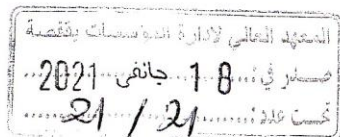 المعهد العالي لإدارة المؤسسات بقفصة
صدر في: 18 جانفي 2021
تحت عدد: 21 / 21